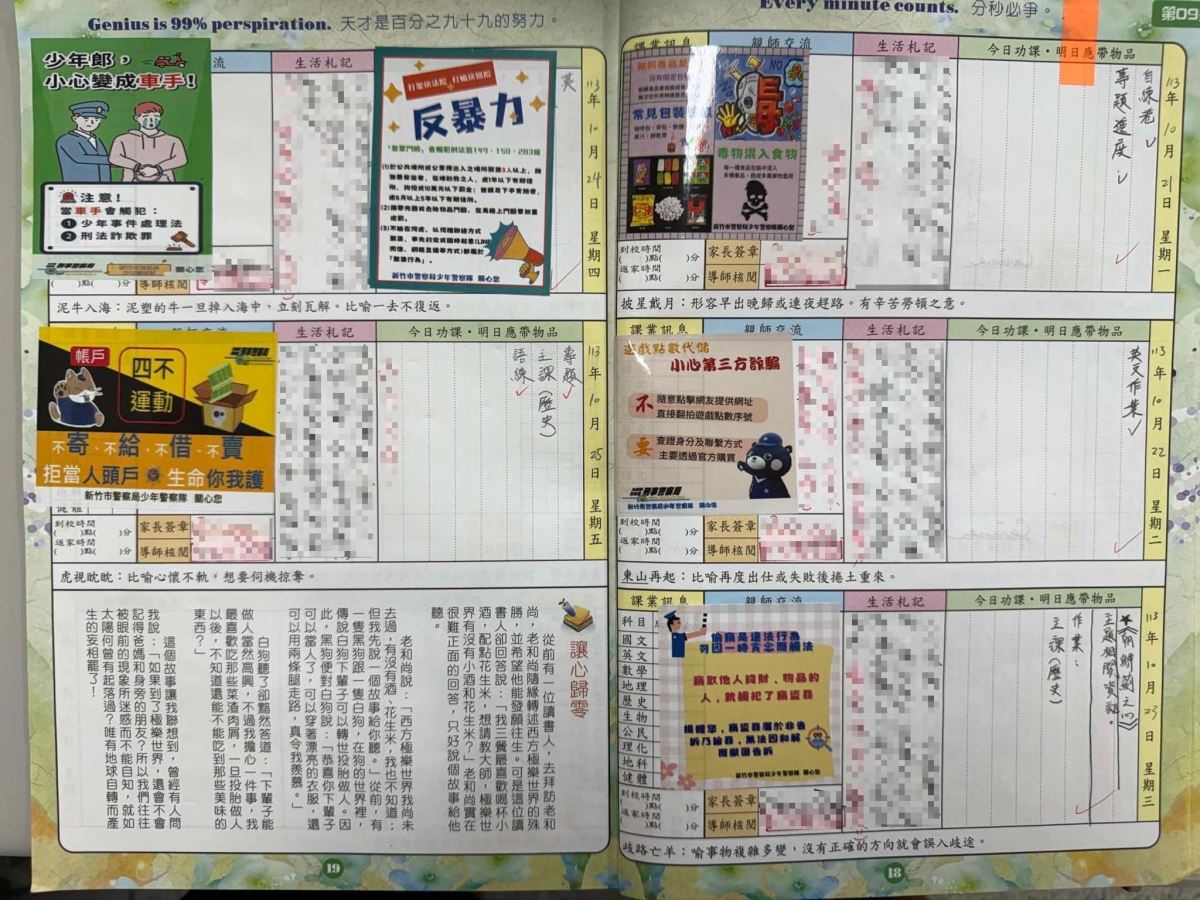 Genius is 99% perspiration. 天才是百分之九十九的努力。
少年郎，
小心變成車手！
注意！
當車手會觸犯：
1 少年事件處理法
2 刑法詐欺罪
關心您
流
生活札記
打架送法院，打輸送醫院
反暴力
「聚眾鬥毆」會觸犯刑法第149、150、283條
新竹市警察局少年警察隊 關心您
英
113年10月24日 星期四
到校時間
( )點( )分
返家時間
( )點( )分
泥牛入海：泥塑的牛一旦掉入海中，立刻瓦解。比喻一去不復返。
生活札記
今日功課・明日應帶物品
帳戶
四不
運動
不寄、不給、不借、不賣
拒當人頭戶 生命你我護
新竹市警察局少年警察隊 關心您
專題
主課(歷史)
語練
113年10月25日 星期五
到校時間
( )點( )分
返家時間
( )點( )分
家長簽章
導師核閱
虎視眈眈：比喻心懷不軌，想要伺機掠奪。
讓心歸零
從前有一位讀書人，去拜訪老和
尚，老和尚隨緣轉述西方極樂世界的殊
勝，並希望他能發願往生。可是這位讀
書人卻回答說：「我三餐最喜歡喝杯小
酒，配點花生米，想請教大師，極樂世
界有沒有小酒和花生米？」老和尚實在
很難正面的回答，只好說個故事給他
聽。
老和尚說：「西方極樂世界我尚未
去過，有沒有酒、花生米，我也不知道；
但我先說一個故事給你聽。」從前，有
一隻黑狗跟一隻白狗，在狗的世界裡，
傳說白狗下輩子可以轉世投胎做人。因
此，黑狗便對白狗說：「恭喜你下輩子
可以當人了，可以穿著漂亮的衣服，還
可以用兩條腿走路，真令我羨慕。」
白狗聽了卻黯然答道：「下輩子能
做人當然高興，不過我擔心一件事，我
最喜歡吃那些菜渣肉屑，一旦投胎做人
以後，不知道還能不能吃到那些美味的
東西？」
這個故事讓我聯想到，曾經有人問
我說：「如果到了極樂世界，還會不會
記得爸媽和身旁的朋友？所以我們往往
被眼前的現象所迷惑而不能自知，就如
太陽何曾有起落過？唯有地球自轉而產
生的妄相罷了！
19
Every minute counts. 分秒必爭。
第09
課業訊息
親師交流
生活札記
今日功課・明日應帶物品
常見包裝
NO
毒
毒物混入食物
自練卷
專題進度
113年10月21日 星期一
到校時間
( )點( )分
返家時間
( )點( )分
家長簽章
導師核閱
披星戴月：形容早出晚歸或連夜趕路。有辛苦勞頓之意。
課業訊息
親師交流
生活札記
今日功課・明日應帶物品
遊戲點數代儲
小心第三方詐騙
不
隨意點擊網友提供網址
直接翻拍遊戲點數序號
要
查證身分及聯繫方式
主要透過官方購買
新竹市警察局少年警察隊 關心您
英文作業
113年10月22日 星期二
到校時間
( )點( )分
返家時間
( )點( )分
家長簽章
導師核閱
東山再起：比喻再度出仕或失敗後捲土重來。
課業訊息
親師交流
生活札記
今日功課・明日應帶物品
科目
國文
英文
數學
地理
歷史
生物
公民
理化
地科
健體
偷竊是違法行為
勿因一時貪念而觸法
竊取他人錢財、物品的
人，就觸犯了竊盜罪
提醒您，竊盜罪屬於非告
訴乃論罪，無法因和解
而撤回告訴
新竹市警察局少年警察隊 關心您
主題相關資料。
作業：
主課(歷史)
113年10月23日 星期三
到校時間
( )點( )分
返家時間
( )點( )分
家長簽章
導師核閱
歧路亡羊：喻事物複雜多變，沒有正確的方向就會誤入歧途。
18